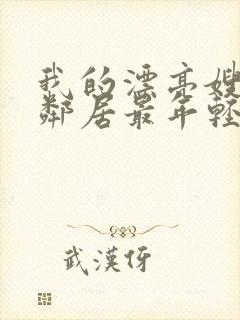 我的漂亮嫂
鄰居最年輕
武漢伢